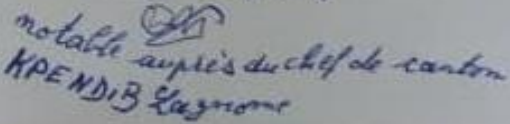 notable auprès du chef de canton
KPENDIB Lagnome